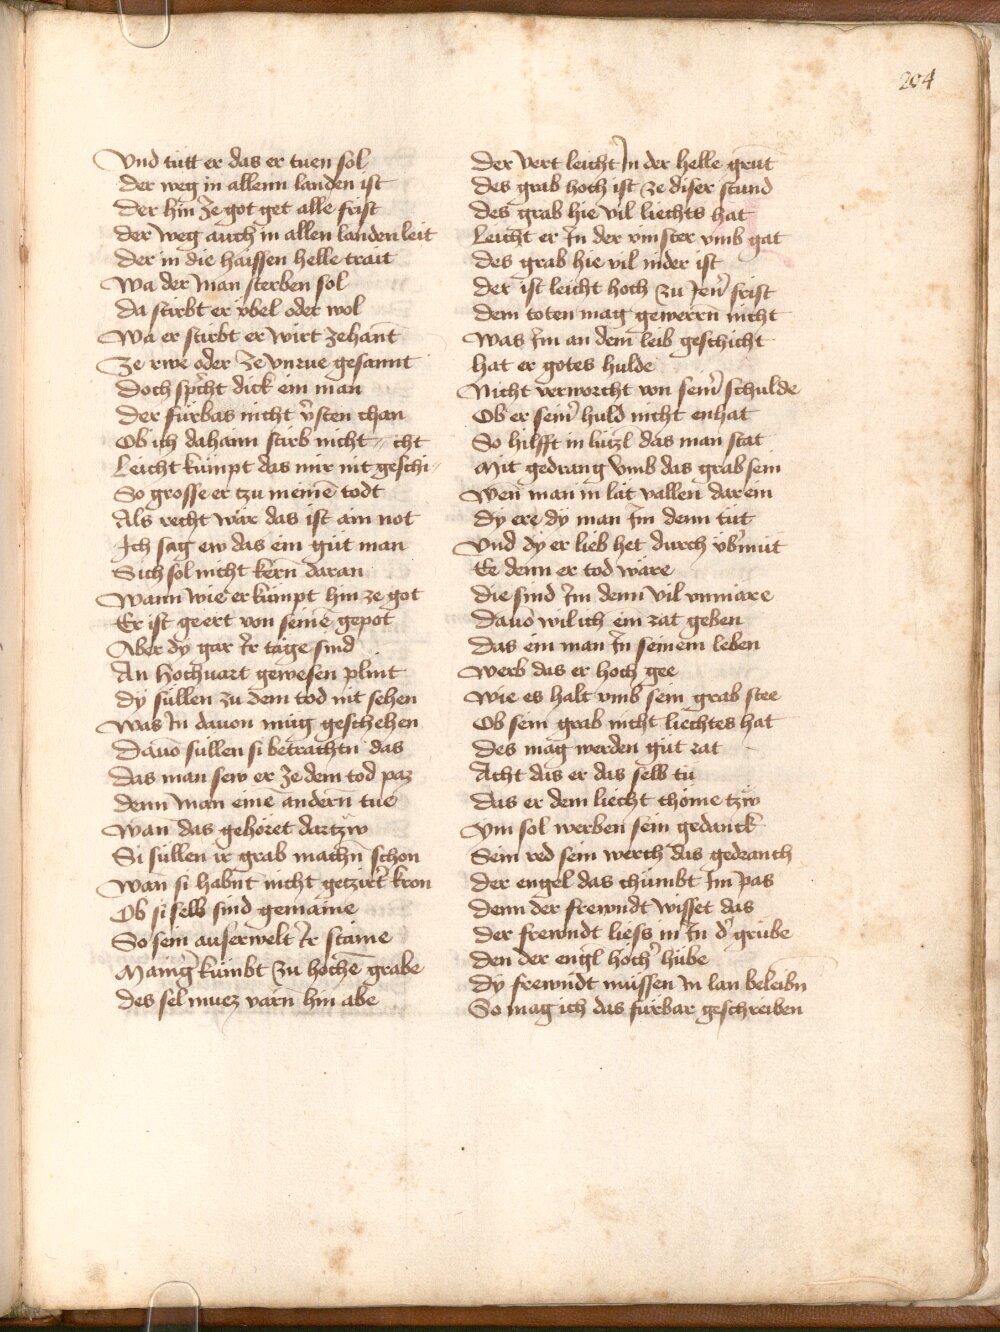 204
Vnd tütt er das er tuen sol
der weg in allenn landen ist
der hin ze got get alle frist
der weg auch in allen landen leit
der in die haissen helle trait
Wa der man sterben sol
da stirbt er vbel oder wol
Wa er stirbt er wirt zehannt
Ze rwe oder ze vnrue gesannt
Doch spͤcht dick ein man
Der fürbas nicht v̾sten chan
Ob ich dahaim stirb nicht cht
Leicht kümpt das mir nit geschi⸗
So grosse er tzu meinē todt
Als recht wär das ist ain not
Ich sag ew das ein güt man
Sich sol nicht kern daran
Wann wie er kumpt hin ze got
Er ist geert von seinē gepot
Aber dy gar Ir tage sind
An Hochuart gewesen plint
dy süllen zu dem tod nit sehen
Was In dauon müg geschehen
Dauō süllen si betrachtn̄ das
das man sew er ze dem tod paz
denn man einē andern̄ tue
Wan̄ das gehöret dartzw
Si süllen ir grab machn̄ schon
Wan̄ si habnt nicht getzirt̾ kron
Ob si selb sind gemaine
So sein auserwelt Ir staine
Maing̾ kümbt zu hochē grabe
des sel muez varn̄ hin abe
Der vert leicht In der helle grūt
des grab hoch ist ze diser stund
des grab hie vil liechts hat
Leicht er In der vinster vmb gat
des grab hie vil nider ist
der ist leicht hoch zu Jen̾ frist
dem toten mag gewerrn̄ nicht
Was Im an dem leib geschicht
hat er gotes hulde
Nicht verworcht von sein̾ schulde
Ob er sein̾ huld nicht enhat
So hilfft in lützl̄ das man stat
Mit gedrang vmb das grab sein
Wen̄ man in lāt vallen darein
dy ere dy man Im denn tüt
Vnd dy er lieb het durch vb̾müt
Ee denn er tod ware
die sind Im denn vil vnmäre
Dauō wil ich ein rat geben
Das ein man In seinem leben
Werb das er hoch gee
Wie es halt vmb sein grab stee
Ob sein grab nicht liechtes hat
des mag werden güt rat
Acht das er das selb tü
das er dem liecht chöme tzw
Vm sol werben sein gedanck
Sein red sein werch das gedranch
der engel das chümbt Im pas
denn der frewndt wisset das
der frewndt liess in In d̾ grübe
den der engl höch̾ hübe
dy frewndt müssen In lan beleibn̄
So mag ich das fürbar geschreiben